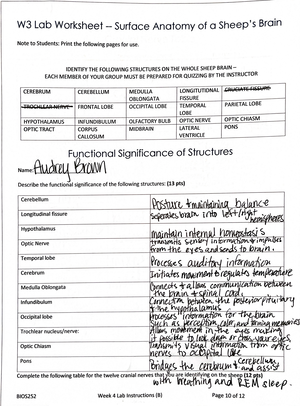 W3 Lab Worksheet -- Surface Anatomy of a Sheep's Brain
Note to Students: Print the following pages for use.
IDENTIFY THE FOLLOWING STRUCTURES ON THE WHOLE SHEEP BRAIN –
EACH MEMBER OF YOUR GROUP MUST BE PREPARED FOR QUIZZING BY THE INSTRUCTOR
CEREBRUM CEREBELLUM MEDULLA OBLONGATA LONGITUTIONAL FISSURE CRUCIATE FISSURE
TROCHLEAR NERVE FRONTAL LOBE OCCIPITAL LOBE TEMPORAL LOBE PARIETAL LOBE
HYPOTHALAMUS INFUNDIBULUM OLFACTORY BULB OPTIC NERVE OPTIC CHIASM
OPTIC TRACT CORPUS CALLOSUM MIDBRAIN LATERAL VENTRICLE PONS
Functional Significance of Structures
Name: Audrey Brown
Describe the functional significance of the following structures: (13 pts)
Cerebellum Posture & maintaining balance
Longitudinal fissure seperates brain into left/right hemispheres
Hypothalamus maintain internal homeostasis
Optic Nerve transmits sensory information & impulses from the eyes and sends to brain.
Temporal lobe Processes auditory information
Cerebrum Initiates movement & regulates temperature
Medulla Oblongata Connects & allows communication between the brain & spinal cord
Infundibulum Connection between the posterior pituitary & the hypothalamus
Occipital lobe processes information for the brain such as perception, color, and forming memories
Trochlear nucleus/nerve: Allows movement in the eyes making it possible to look down or cross your eyes
Optic Chiasm transmits visual information from optic nerves to occipital lobe
Pons Bridges the cerebrum & cerebellum, and assist with breathing and REM sleep.
Complete the following table for the twelve cranial nerves that you are identifying on the sheep (12 pts)
BIOS252 Week 4 Lab Instructions (B) Page 10 of 12